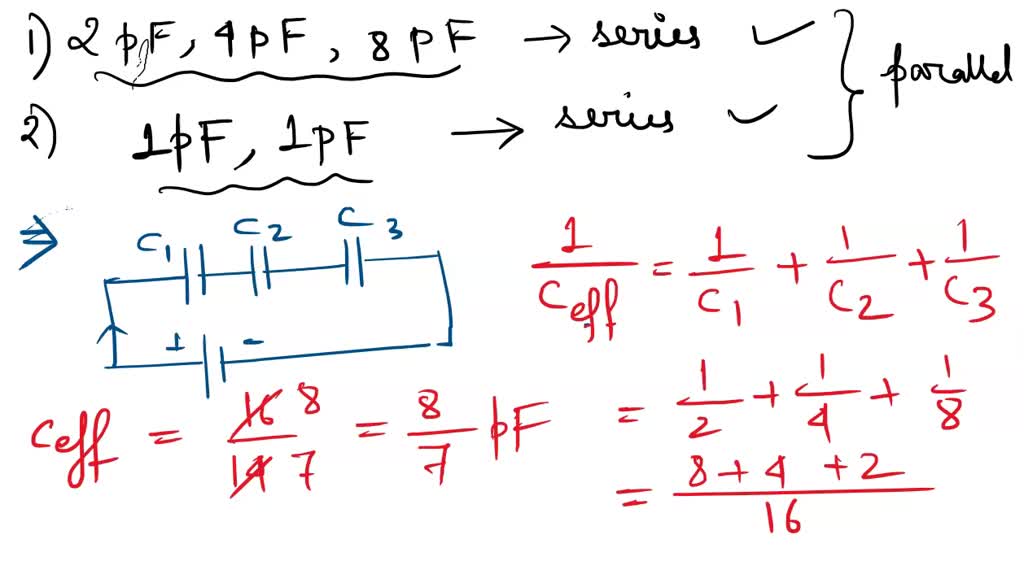 1) 2 pF, 4 pF, 8 pF → series ✓
2) 1pF, 1pF → series ✓
} parallel
⇒
C1 C2 C3
+ -
1/Ceff = 1/C1 + 1/C2 + 1/C3
= 1/2 + 1/4 + 1/8
= 8 + 4 + 2 / 16
Ceff = 16 8 / 14 7 = 8/7 pF